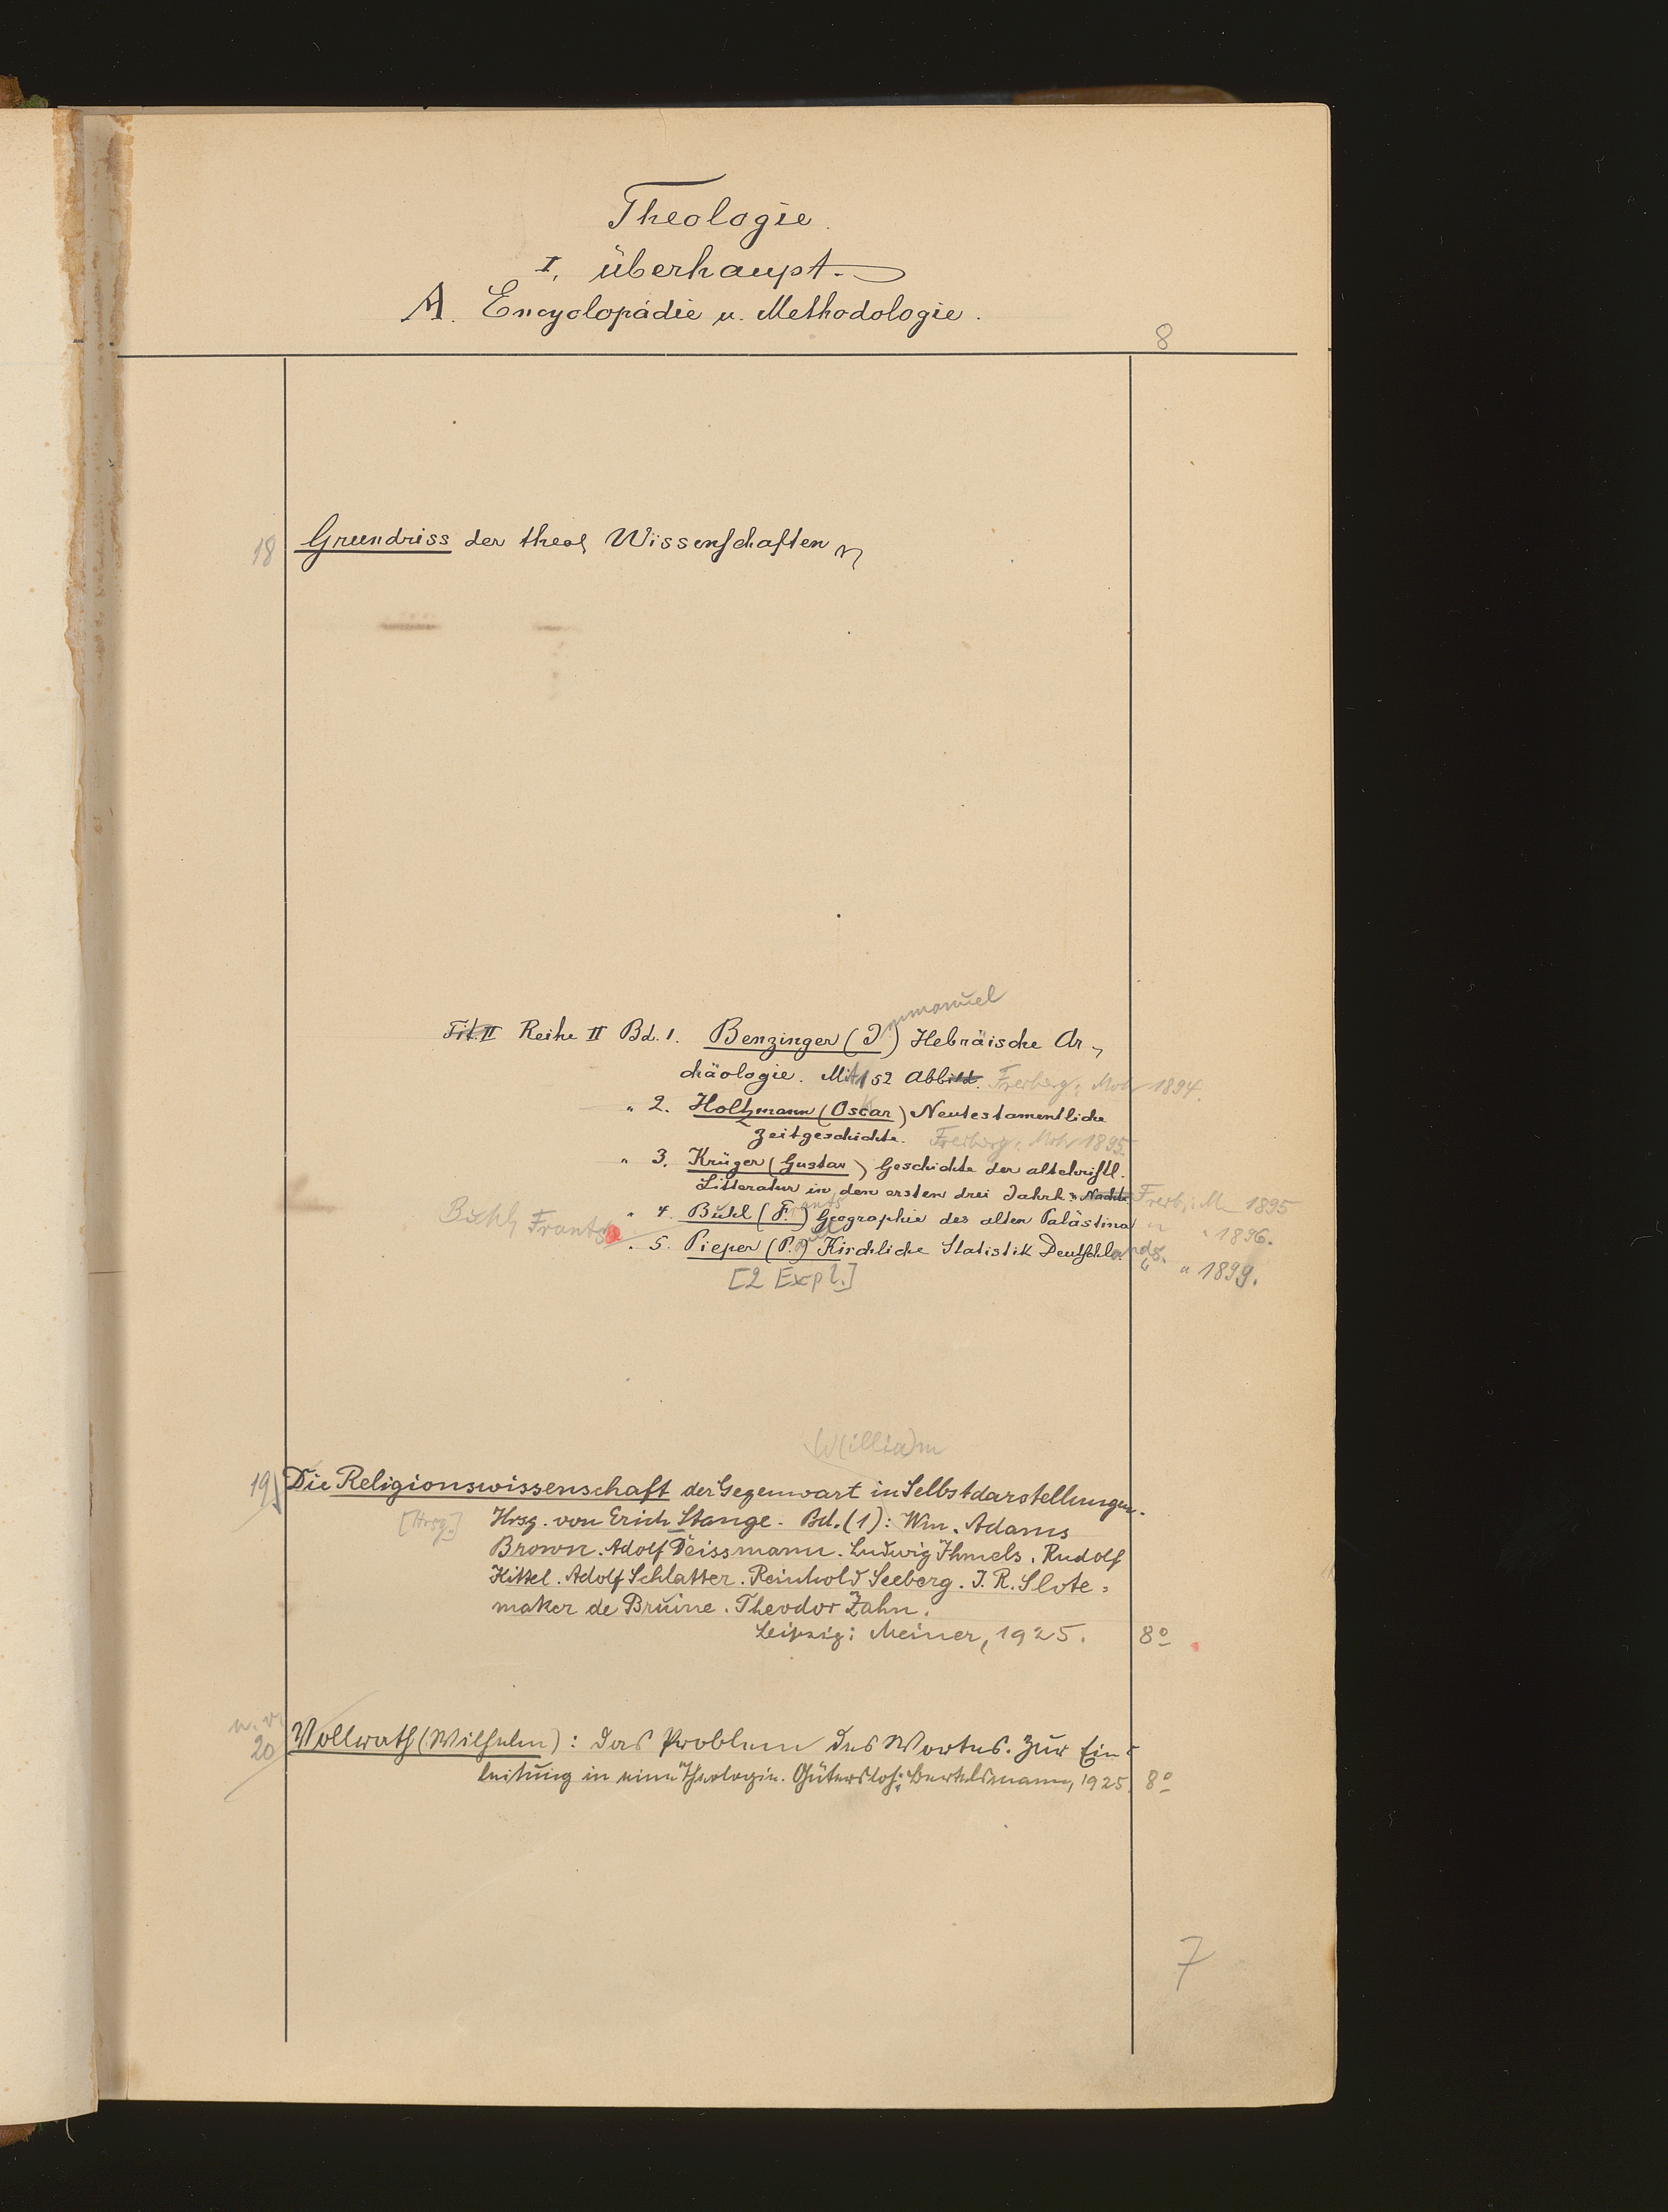 Theologie.
I. überhaupt.
A. Encyclopädie u. Methodologie.
8
18 Grundriss der theol Wissenschaften
mmanuel
Tit. II Reihe II Bd. 1. Benzinger (I.) Hebräische Ar-
chäologie. Mit 152 Abbild. Freiberg: Mohr 1894.
" 2. Holtzmann (Oscar) Neutestamentliche
Zeitgeschichte. Freiberg: Mohr 1895
" 3. Krüger (Gustav) Geschichte der altchristl.
Litteratur in den ersten drei Jahrh. Freib.: M 1895
Buhl, Frants
" 4. Buhl (F.rants) Geographie des alten Palästina " " 1896.
" 5. Pieper (P.aul) Kirchliche Statistik Deutschlands. " " 1899.
[2 Expl.]
W(illia)m
19 Die Religionswissenschaft der Gegenwart in Selbstdarstellungen.
[Hrsg.] Hrsg. von Erich Stange. Bd. (1): Wm. Adams
Brown. Adolf Deissmann. Ludwig Ihmels. Rudolf
Kittel. Adolf Schlatter. Reinhold Seeberg. J. R. Slote-
maker de Bruine. Theodor Zahn.
Leipzig: Meiner, 1925. 8°
20 Vollrath (Wilhelm): Das Problem des Wortes. Zur Ein-
leitung in eine Theologie. Gütersloh: Bertelsmann, 1925. 8°
7